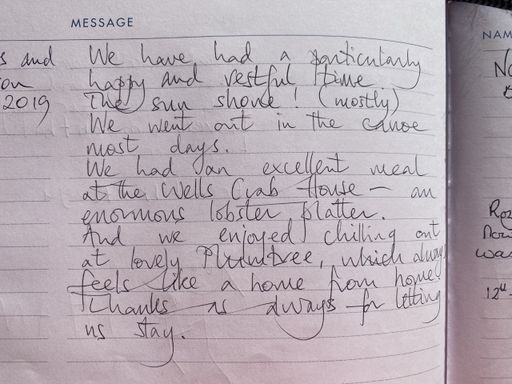 MESSAGE
NAM
s and
on
2019
We have had a particularly
happy and restful time
The sun shone! (mostly)
We went out in the canoe
most days.
We had an excellent meal
at the Wells Crab House – an
enormous lobster platter.
And we enjoyed chilling out
at lovely Plumtree, which always
feels like a home from home!
Thanks as always for letting
us stay.
No
Roz
was
12th